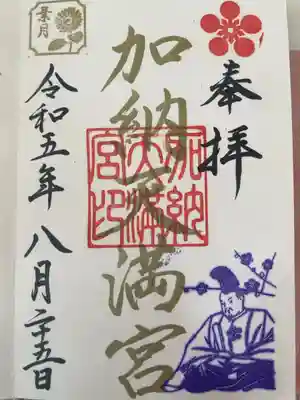 奉拝
加納天満宮
加納
天満
宮印
葉月
令和五年 八月二十五日